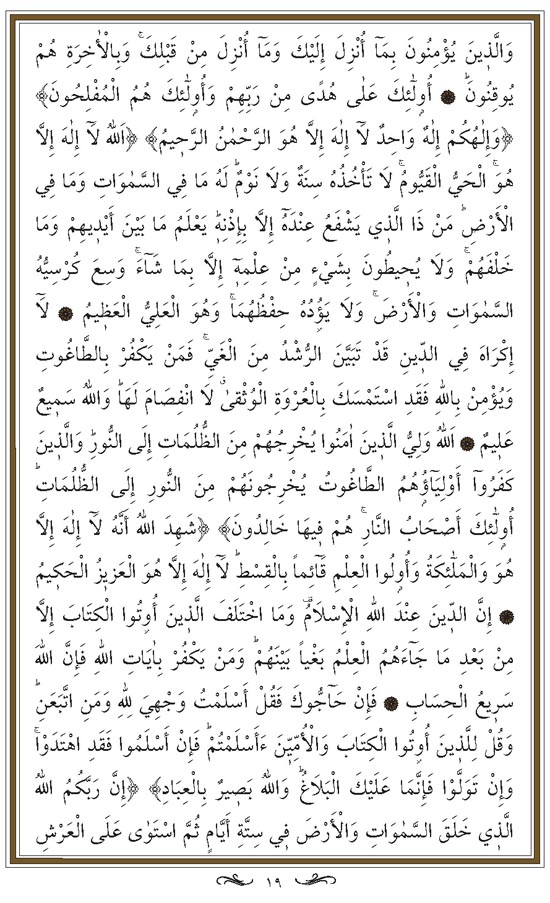 وَالَّذِينَ يُؤْمِنُونَ بِمَآ أُنْزِلَ إِلَيْكَ وَمَآ أُنْزِلَ مِنْ قَبْلِكَۚ وَبِالْاٰخِرَةِ هُمْ
يُوقِنُونَۜ ۝ أُولٰٓئِكَ عَلٰى هُدًى مِنْ رَبِّهِمْ وَأُولٰٓئِكَ هُمُ الْمُفْلِحُونَ﴾
﴿وَإِلٰهُكُمْ إِلٰهٌ وَاحِدٌۚ لَآ إِلٰهَ إِلَّا هُوَ الرَّحْمٰنُ الرَّحِيمُ﴾ ﴿اَللهُ لَآ إِلٰهَ إِلَّا
هُوَۚ الْحَيُّ الْقَيُّومُۚ لَا تَأْخُذُهُ سِنَةٌ وَلَا نَوْمٌۜ لَهُ مَا فِي السَّمٰوَاتِ وَمَا فِي
الْأَرْضِۜ مَنْ ذَا الَّذِي يَشْفَعُ عِنْدَهُٓ إِلَّا بِإِذْنِهِۜ يَعْلَمُ مَا بَيْنَ أَيْدِيهِمْ وَمَا
خَلْفَهُمْۚ وَلَا يُحِيطُونَ بِشَيْءٍ مِنْ عِلْمِهِٓ إِلَّا بِمَا شَآءَۚ وَسِعَ كُرْسِيُّهُ
السَّمٰوَاتِ وَالْأَرْضَۚ وَلَا يَؤُدُهُ حِفْظُهُمَاۚ وَهُوَ الْعَلِيُّ الْعَظِيمُ ۝ لَآ
إِكْرَاهَ فِي الدِّينِ قَدْ تَبَيَّنَ الرُّشْدُ مِنَ الْغَيِّۚ فَمَنْ يَكْفُرْ بِالطَّاغُوتِ
وَيُؤْمِنْ بِاللهِ فَقَدِ اسْتَمْسَكَ بِالْعُرْوَةِ الْوُثْقٰىۗ لَا انْفِصَامَ لَهَاۜ وَاللهُ سَمِيعٌ
عَلِيمٌ ۝ اَللهُ وَلِيُّ الَّذِينَ اٰمَنُوا يُخْرِجُهُمْ مِنَ الظُّلُمَاتِ إِلَى النُّورِۜ وَالَّذِينَ
كَفَرُوٓا أَوْلِيَآؤُهُمُ الطَّاغُوتُ يُخْرِجُونَهُمْ مِنَ النُّورِ إِلَى الظُّلُمَاتِۜ
أُولٰٓئِكَ أَصْحَابُ النَّارِۚ هُمْ فِيهَا خَالِدُونَ﴾ ﴿شَهِدَ اللهُ أَنَّهُ لَآ إِلٰهَ إِلَّا
هُوَ وَالْمَلٰٓئِكَةُ وَأُولُوا الْعِلْمِ قَآئِماً بِالْقِسْطِۜ لَآ إِلٰهَ إِلَّا هُوَ الْعَزِيزُ الْحَكِيمُ
۝ إِنَّ الدِّينَ عِنْدَ اللهِ الْإِسْلَامُ۠ وَمَا اخْتَلَفَ الَّذِينَ أُوتُوا الْكِتَابَ إِلَّا
مِنْ بَعْدِ مَا جَآءَهُمُ الْعِلْمُ بَغْياً بَيْنَهُمْۜ وَمَنْ يَكْفُرْ بِاٰيَاتِ اللهِ فَإِنَّ اللهَ
سَرِيعُ الْحِسَابِ ۝ فَإِنْ حَآجُّوكَ فَقُلْ أَسْلَمْتُ وَجْهِيَ لِلهِ وَمَنِ اتَّبَعَنِۜ
وَقُلْ لِلَّذِينَ أُوتُوا الْكِتَابَ وَالْأُمِّيِّنَ ءَأَسْلَمْتُمْۜ فَإِنْ أَسْلَمُوا فَقَدِ اهْتَدَوْاۚ
وَإِنْ تَوَلَّوْا فَإِنَّمَا عَلَيْكَ الْبَلَاغُۜ وَاللهُ بَصِيرٌ بِالْعِبَادِ﴾ ﴿إِنَّ رَبَّكُمُ اللهُ
الَّذِي خَلَقَ السَّمٰوَاتِ وَالْأَرْضَ فِي سِتَّةِ أَيَّامٍ ثُمَّ اسْتَوٰى عَلَى الْعَرْشِ
١٩